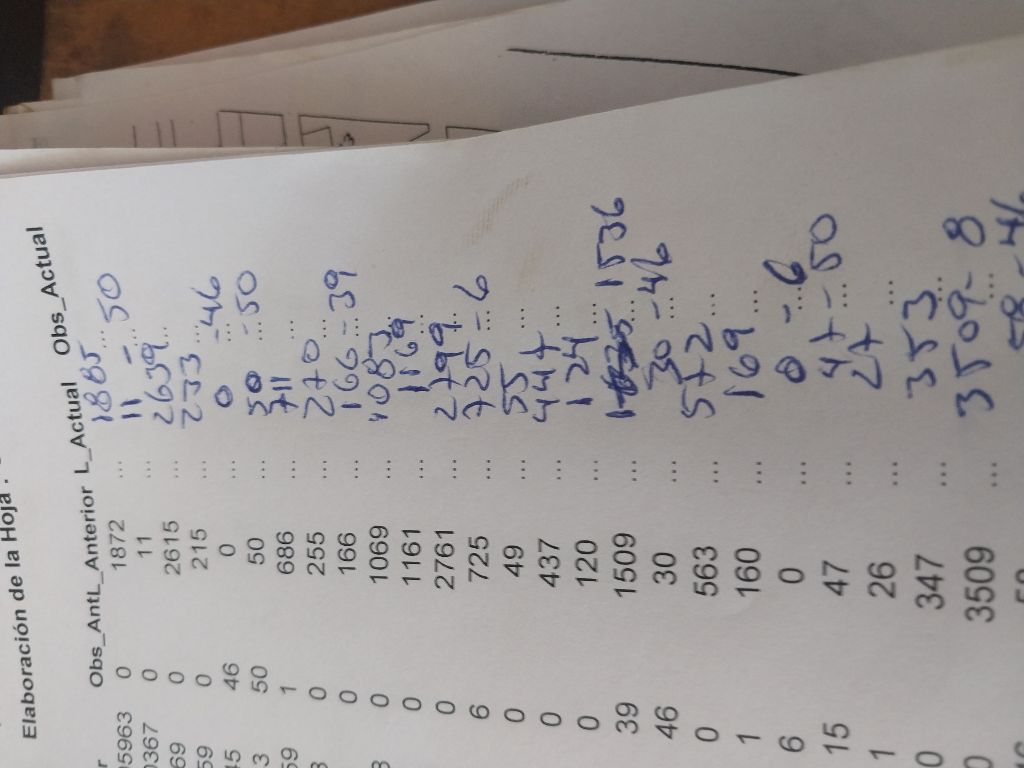 Elaboración de la Hoja :
Obs_AntL_Anterior L_Actual Obs_Actual
05963 0 1872 ... 1885 ...
0367 0 11 ... 11 - 50
69 0 2615 ... 2639 ...
59 0 215 ... 233 ...
45 46 0 ... 0 ... -46
3 50 50 ... 50 ... -50
59 1 686 ... 711 ...
0 255 ... 270 ...
0 166 ... 166 ... -39
0 1069 ... 1083 ...
0 1161 ... 1169 ...
0 2761 ... 2799 ...
6 725 ... 725 ... -6
0 49 ... 55 ...
0 437 ... 447 ...
0 120 ... 124 ...
39 1509 ... 1536
46 30 ... 30 ... -46
0 563 ... 572 ...
1 160 ... 169 ...
6 0 ... 0 ... -6
15 47 ... 47 ... -50
1 26 ... 27 ...
0 347 ... 353 ...
0 3509 ... 3509 ... -8
58 - 46